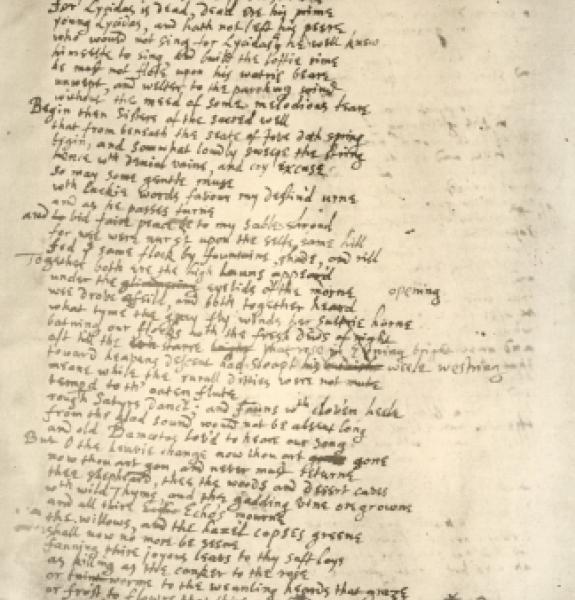 for Lycidas is dead, dead ere his prime
young Lycidas, and hath not left his peere
who would not sing for Lycidas? he well knew
himselfe to sing, and build the loftie rime
he must not flote upon his watrie beare
unwept, and welter to the parching wind
without the meed of some melodious teare
Begin then Sisters of the sacred well
that from beneath the seate of Jove doth spring
begin, and somwhat loudly sweepe the string
hence wth denial vaine, and coy excuse
so may some gentle muse
wth luckie words favour my destin'd urne
and as he passes turne
and bid faire peace be to my sable shroud
for wee were nurst upon the selfe same hill
fed ye same flock by fountaine, shade, and rill
Together both ere the high launs appeard
under the glimmering eyelids of the morne opening
wee drove afeild, and both together heard
what tyme the gray fly winds her sultrie horne
batning our flocks wth the fresh dews of night
oft till the starre that rose in Evning bright
toward heavens descent had sloapt his weele westring
meane while the rurall ditties were not mute
temper'd to th' oaten flute
rough Satyrs danc't, and Fauns wth cloven heele
from the glad sound would not be absent long
and old Damoetas lov'd to heare our song
But O the heavie change now thou art gone
now thou art gon, and never must returne
thee shepheard, thee the woods and desert caves
wth wild Thyme, and the gadding vine oregrowne
and all thire Echo's mourne
the willows, and the hazel copses greene
shall now no more be seene
fanning thire joyous leavs to thy soft lays
as killing as the canker to the rose
or taint-worme to the weanling heards that graze
or frost to flowrs that